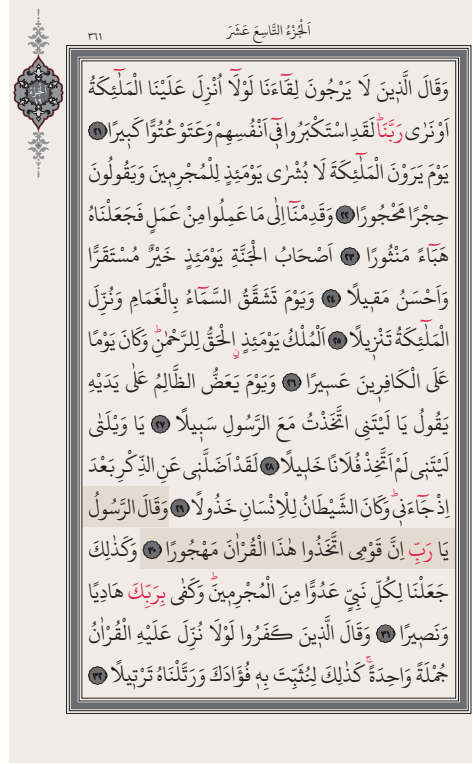 ٣٦١
اَلْجُزْءُ التَّاسِعَ عَشَرَ
اَلْجُزْءُ
١٩
وَقَالَ الَّذِينَ لَا يَرْجُونَ لِقَٓاءَنَا لَوْلَٓا اُنْزِلَ عَلَيْنَا الْمَلٰٓئِكَةُ
اَوْ نَرٰى رَبَّنَاۜ لَقَدِ اسْتَكْبَرُوا فٖٓى اَنْفُسِهِمْ وَعَتَوْ عُتُوًّا كَبٖيرًا ﴿٢١﴾
يَوْمَ يَرَوْنَ الْمَلٰٓئِكَةَ لَا بُشْرٰى يَوْمَئِذٍ لِلْمُجْرِمٖينَ وَيَقُولُونَ
حِجْرًا مَحْجُورًا ﴿٢٢﴾ وَقَدِمْنَٓا اِلٰى مَا عَمِلُوا مِنْ عَمَلٍ فَجَعَلْنَاهُ
هَبَٓاءً مَنْثُورًا ﴿٢٣﴾ اَصْحَابُ الْجَنَّةِ يَوْمَئِذٍ خَيْرٌ مُسْتَقَرًّا
وَاَحْسَنُ مَقٖيلًا ﴿٢٤﴾ وَيَوْمَ تَشَقَّقُ السَّمَٓاءُ بِالْغَمَامِ وَنُزِّلَ
الْمَلٰٓئِكَةُ تَنْزٖيلًا ﴿٢٥﴾ اَلْمُلْكُ يَوْمَئِذٍ الْحَقُّ لِلرَّحْمٰنِۜ وَكَانَ يَوْمًا
عَلَى الْكَافِرٖينَ عَسٖيرًا ﴿٢٦﴾ وَيَوْمَ يَعَضُّ الظَّالِمُ عَلٰى يَدَيْهِ
يَقُولُ يَا لَيْتَنِى اتَّخَذْتُ مَعَ الرَّسُولِ سَبٖيلًا ﴿٢٧﴾ يَا وَيْلَتٰى
لَيْتَنٖى لَمْ اَتَّخِذْ فُلَانًا خَلٖيلًا ﴿٢٨﴾ لَقَدْ اَضَلَّنٖى عَنِ الذِّكْرِ بَعْدَ
اِذْ جَٓاءَنٖىۜ وَكَانَ الشَّيْطَانُ لِلْاِنْسَانِ خَذُولًا ﴿٢٩﴾ وَقَالَ الرَّسُولُ
يَا رَبِّ اِنَّ قَوْمِى اتَّخَذُوا هٰذَا الْقُرْاٰنَ مَهْجُورًا ﴿٣٠﴾ وَكَذٰلِكَ
جَعَلْنَا لِكُلِّ نَبِىٍّ عَدُوًّا مِنَ الْمُجْرِمٖينَۜ وَكَفٰى بِرَبِّكَ هَادِيًا
وَنَصٖيرًا ﴿٣١﴾ وَقَالَ الَّذٖينَ كَفَرُوا لَوْلَا نُزِّلَ عَلَيْهِ الْقُرْاٰنُ
جُمْلَةً وَاحِدَةًۚ كَذٰلِكَ لِنُثَبِّتَ بِهٖ فُؤَادَكَ وَرَتَّلْنَاهُ تَرْتٖيلًا ﴿٣٢﴾